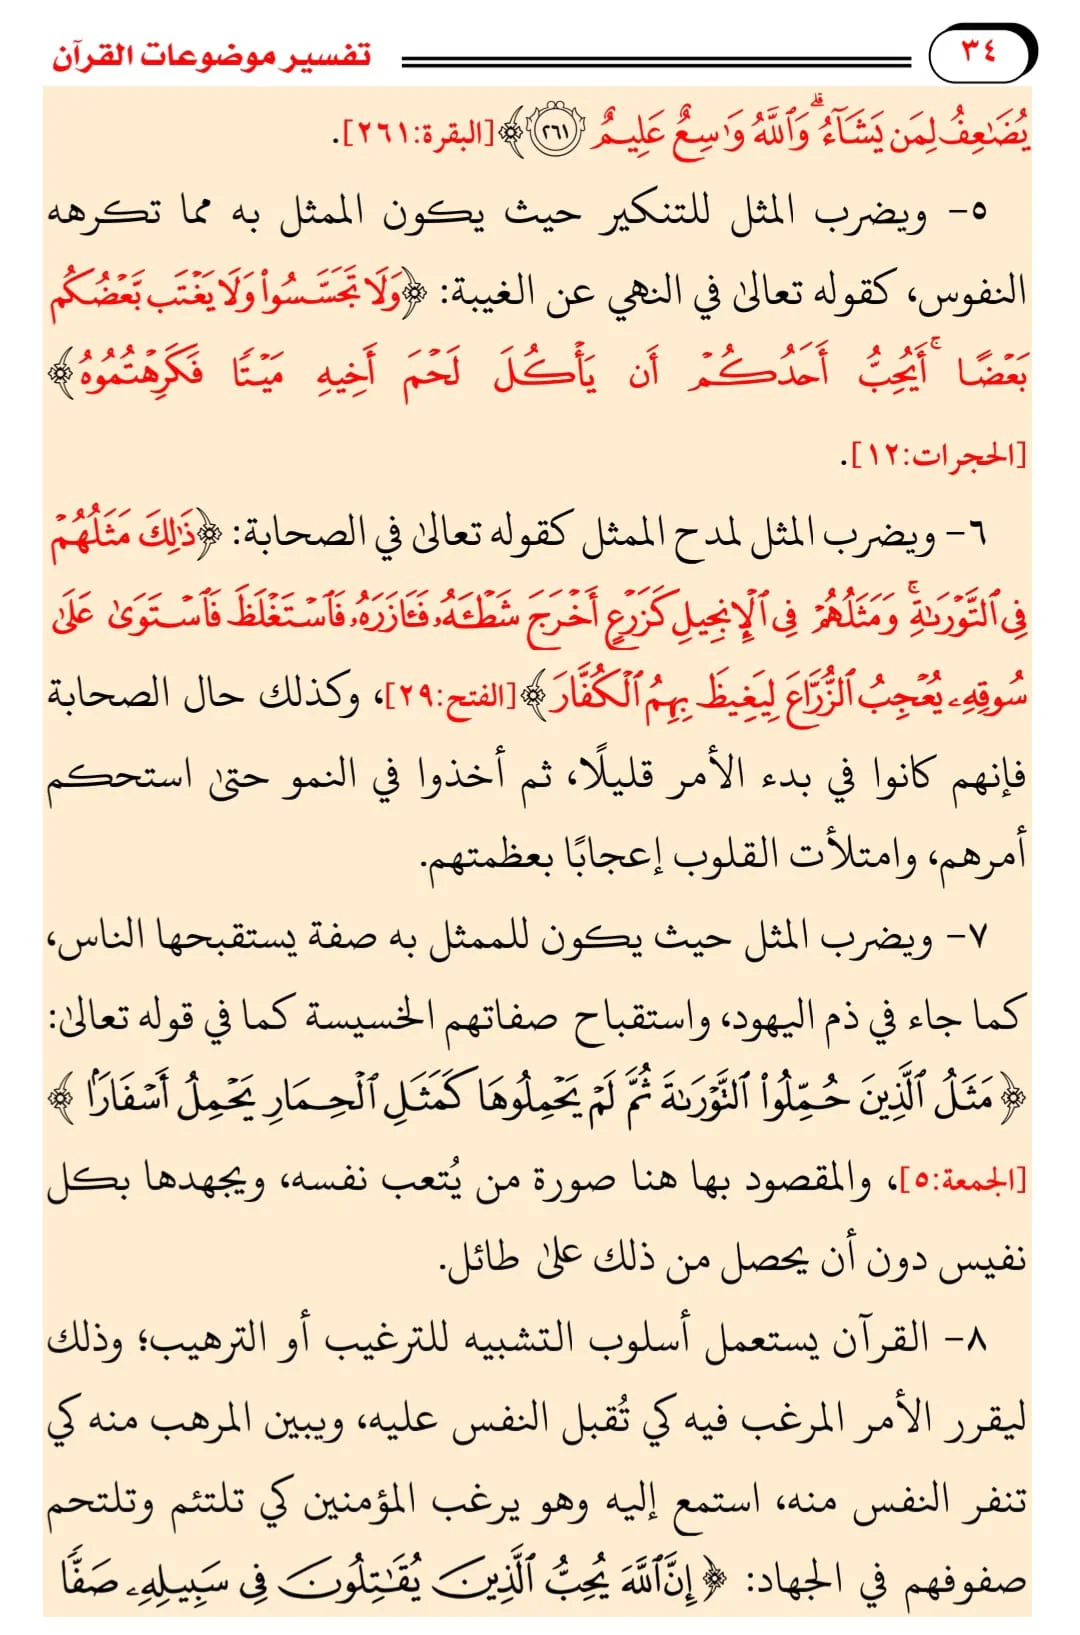 ٣٤ تفسير موضوعات القرآن
يُضَٰعِفُ لِمَن يَشَآءُ ۗ وَٱللَّهُ وَٰسِعٌ عَلِيمٌ ٢٦١﴾ [البقرة:٢٦١].
٥- ويضرب المثل للتنكير حيث يكون الممثل به مما تكرهه
النفوس، كقوله تعالىٰ في النهي عن الغيبة: ﴿وَلَا تَجَسَّسُوا۟ وَلَا يَغْتَب بَّعْضُكُم
بَعْضًا ۚ أَيُحِبُّ أَحَدُكُمْ أَن يَأْكُلَ لَحْمَ أَخِيهِ مَيْتًا فَكَرِهْتُمُوهُ﴾
[الحجرات:١٢].
٦- ويضرب المثل لمدح الممثل كقوله تعالىٰ في الصحابة: ﴿ذَٰلِكَ مَثَلُهُمْ
فِى ٱلتَّوْرَىٰةِ ۚ وَمَثَلُهُمْ فِى ٱلْإِنجِيلِ كَزَرْعٍ أَخْرَجَ شَطْـَٔهُۥ فَـَٔازَرَهُۥ فَٱسْتَغْلَظَ فَٱسْتَوَىٰ عَلَىٰ
سُوقِهِۦ يُعْجِبُ ٱلزُّرَّاعَ لِيَغِيظَ بِهِمُ ٱلْكُفَّارَ﴾ [الفتح:٢٩]، وكذلك حال الصحابة
فإنهم كانوا في بدء الأمر قليلًا، ثم أخذوا في النمو حتىٰ استحكم
أمرهم، وامتلأت القلوب إعجابًا بعظمتهم.
٧- ويضرب المثل حيث يكون للممثل به صفة يستقبحها الناس،
كما جاء في ذم اليهود، واستقباح صفاتهم الخسيسة كما في قوله تعالىٰ:
﴿مَثَلُ ٱلَّذِينَ حُمِّلُوا۟ ٱلتَّوْرَىٰةَ ثُمَّ لَمْ يَحْمِلُوهَا كَمَثَلِ ٱلْحِمَارِ يَحْمِلُ أَسْفَارًۢا﴾
[الجمعة:٥]، والمقصود بها هنا صورة من يُتعب نفسه، ويجهدها بكل
نفيس دون أن يحصل من ذلك علىٰ طائل.
٨- القرآن يستعمل أسلوب التشبيه للترغيب أو الترهيب؛ وذلك
ليقرر الأمر المرغب فيه كي تُقبل النفس عليه، ويبين المرهب منه كي
تنفر النفس منه، استمع إليه وهو يرغب المؤمنين كي تلتئم وتلتحم
صفوفهم في الجهاد: ﴿إِنَّ ٱللَّهَ يُحِبُّ ٱلَّذِينَ يُقَٰتِلُونَ فِى سَبِيلِهِۦ صَفًّا